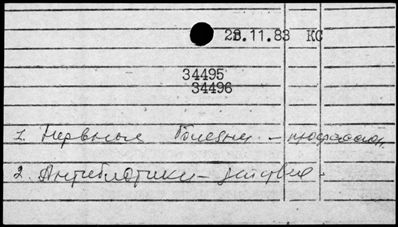 28.11.83 КС
34495
34496
1. Нервные болезни –
2. Антибиотики – действие.